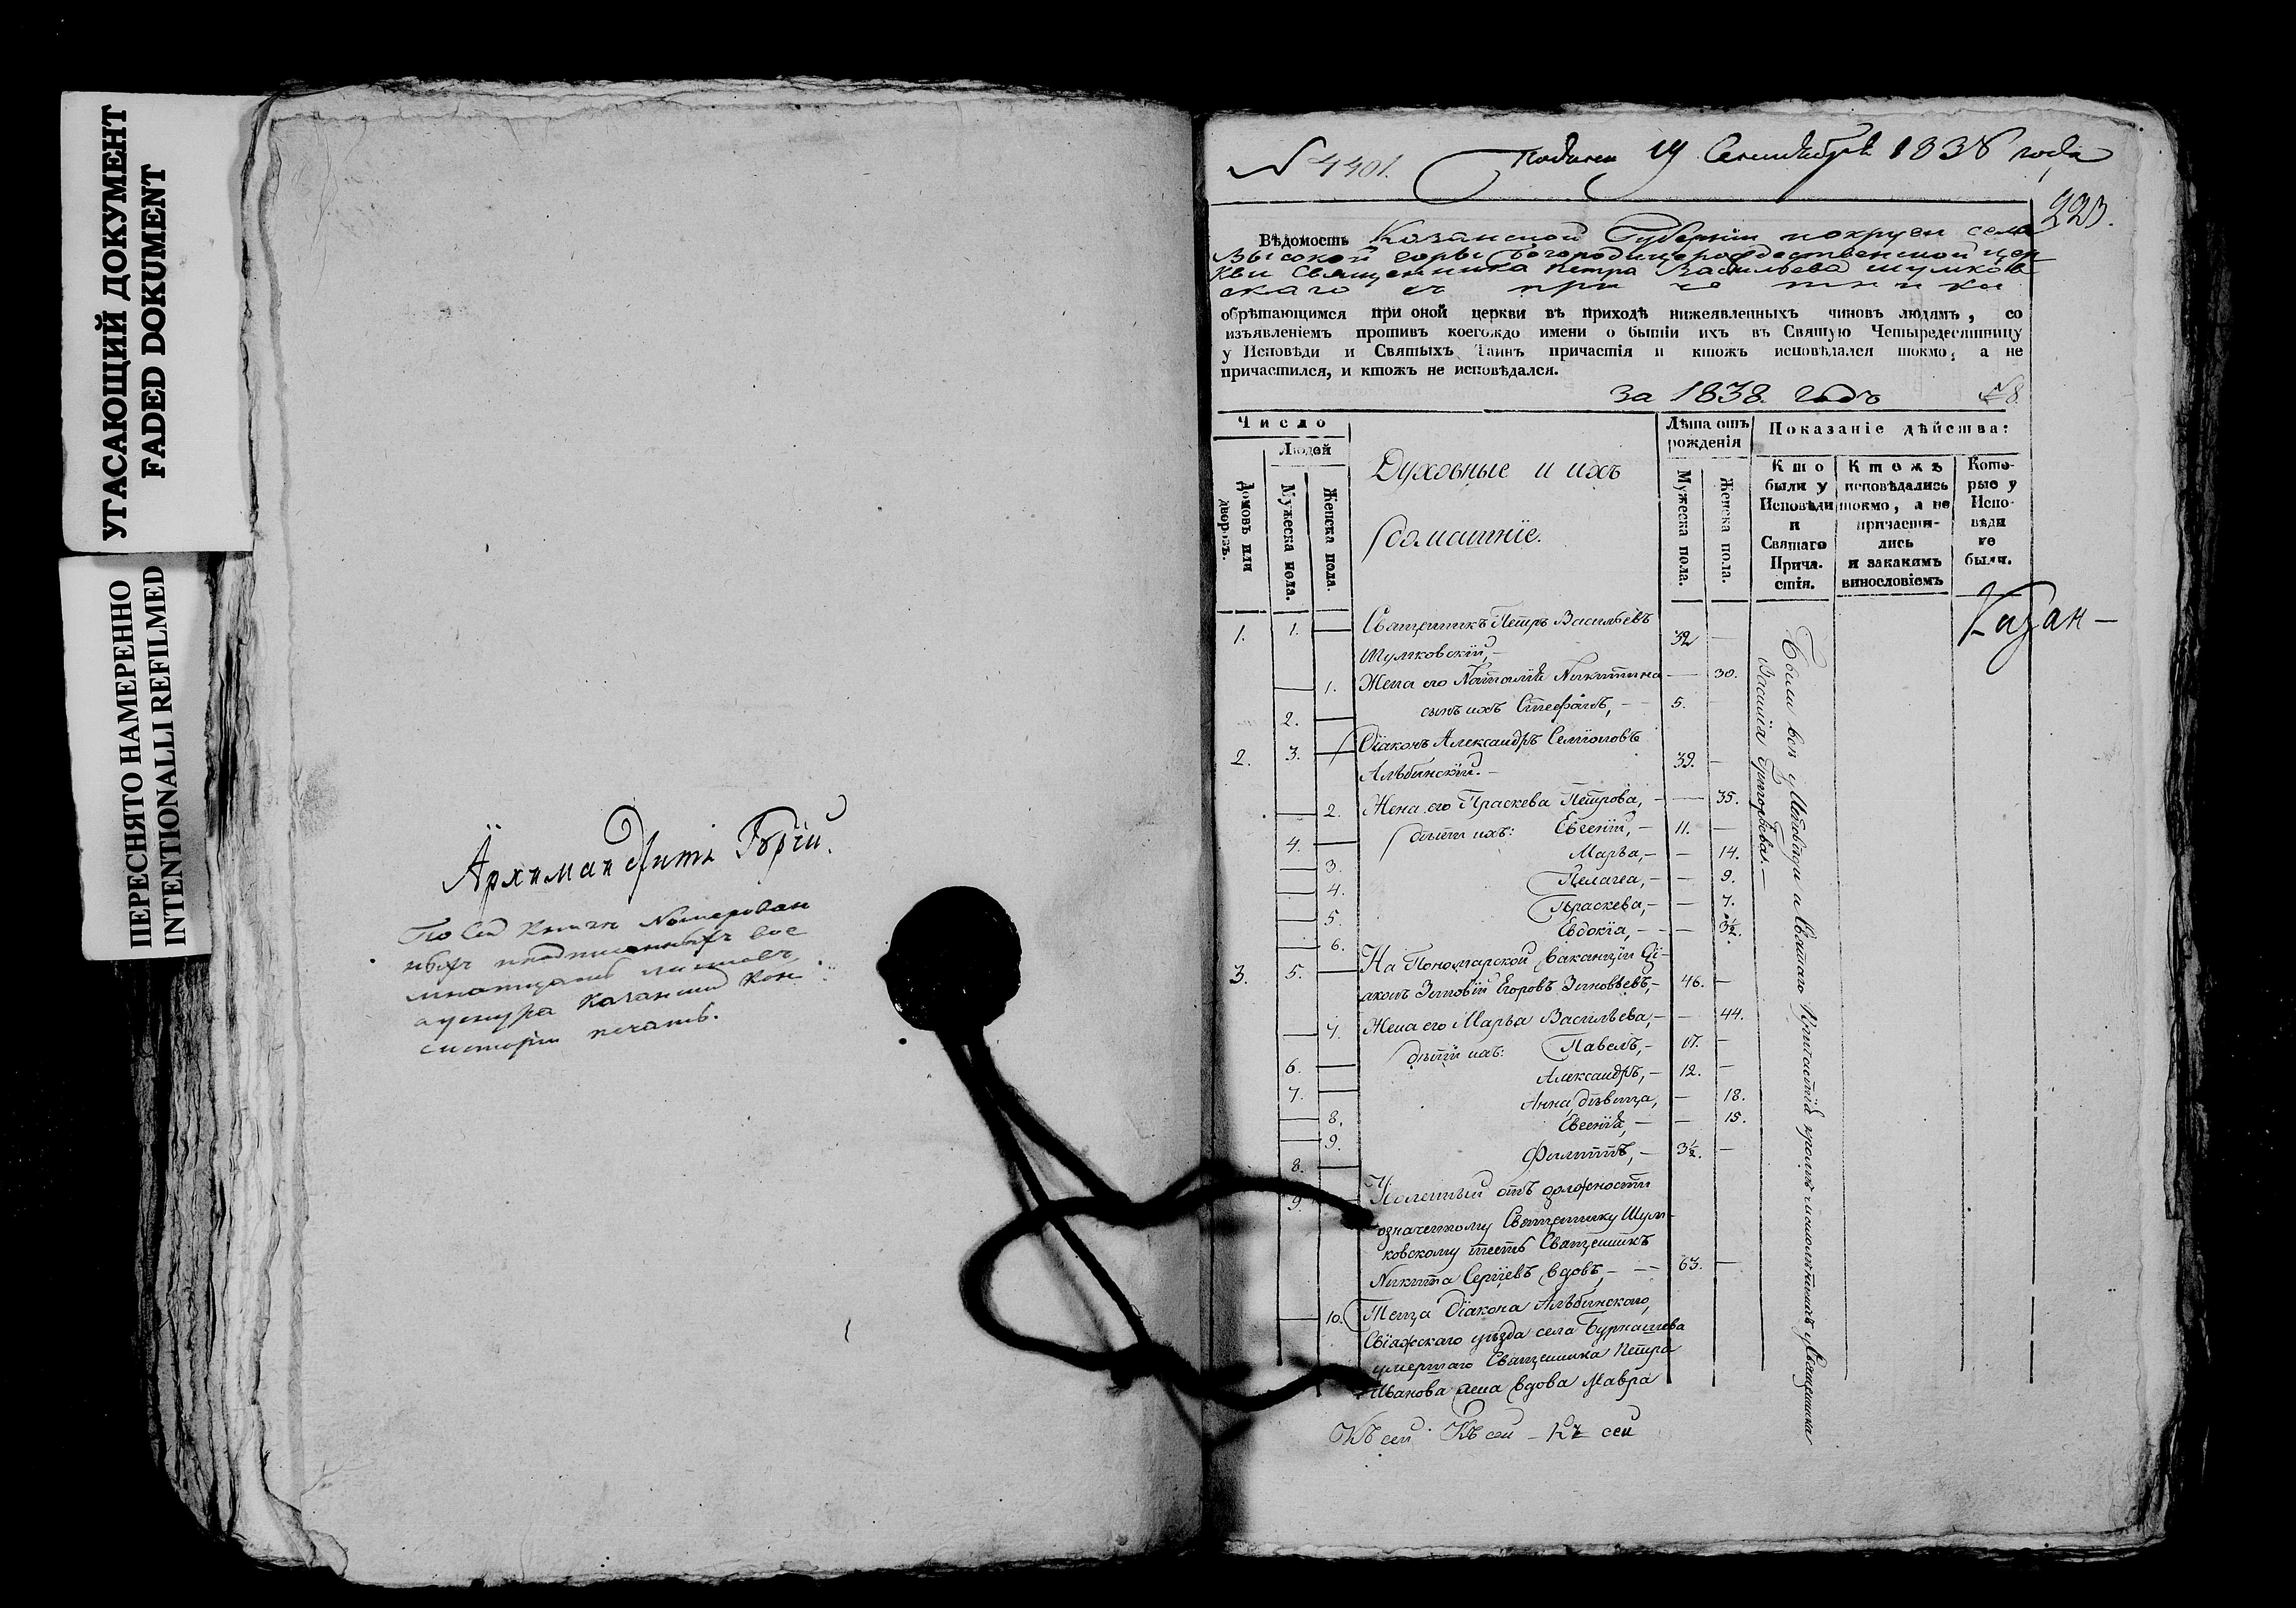 УГАСАЮЩИЙ ДОКУМЕНТ
FADED DOKUMENT
ПЕРЕСНЯТО НАМЕРЕННО
INTENTIONALLI REFILMED
Архимандритъ
По сей книги номерован
ныхъ
листовъ
Казанской Кон
систоріи печать.
N 4401. Подана 19 Сентября 1838 года
223.
Вѣдомость Казанской Губерніи округи села
Высокой горы Богородицерождественской цер
кви Священника Петра Васильева Шумков
скаго съ причетники
обрѣтающимся при оной церкви въ приходѣ нижеявленныхъ чиновъ людямъ, со
изъявленіемъ противъ коегождо имени о бытіи ихъ въ Святую Четыредесятницу
у Исповѣди и Святыхъ Таинъ причастія и ктожъ исповѣдался токмо, а не
причастился, и ктожъ не исповѣдался.
за 1838. годъ №8.
Число
Людей
Домовъ или дворовъ.
Мужеска пола.
Женска пола.
Духовные и ихъ
домашніе.
Лѣта отъ рожденія
Мужеска пола.
Женска пола.
Показаніе дѣйства:
Кто были у Исповѣди и Святаго Прича-стія.
Ктожъ исповѣдались токмо, а не причасти-лись и закакимъ винословіемъ
Кото-рые у Испо-вѣди не были.
Казан-
1. 1. — Священникъ Петръ Васильевъ
Шумковскій, — 32 —
— 1. Жена его Наталія Никитина — 30.
2. — сынъ ихъ Стефанъ, — 5. —
2. 3. — Діаконъ Александръ Семіоновъ
Альбинскій. — 39. —
— 2. Жена его Праскева Петрова, — 35.
4. — дѣти ихъ: Евгеній, — 11. —
— 3. Марья, — — 14.
— 4. Пелагея, — — 9.
— 5. Праскева, — — 7.
— 6. Евдокія, — — 3½.
3. 5. — На Пономарской вакансіи Ді-
аконъ Зиновій Егоровъ Зиновьевъ, — 46. —
— 7. Жена его Марья Васильева, — — 44.
6. — дѣти ихъ: Павелъ, — 17. —
7. — Александръ, — 12. —
— 8. Анна дѣвица, — 18.
— 9. Евгенія, — — 15.
8. — Филиппъ, — 3½. —
9. — отъ должности
означенному Священнику Шум-
ковскому тесть Священникъ
Никита Сергіевъ вдовъ, — — 63. —
— 10. Теща Діакона Альбинскаго,
Свіяжскаго уѣзда села Бурнашева
умершаго Священника Петра
Иванова жена вдова Мавра
Были всѣ у Исповѣди и Святаго Причастія у Священника
Василія Григорьева. —
Къ сей Къ сей — Къ сей